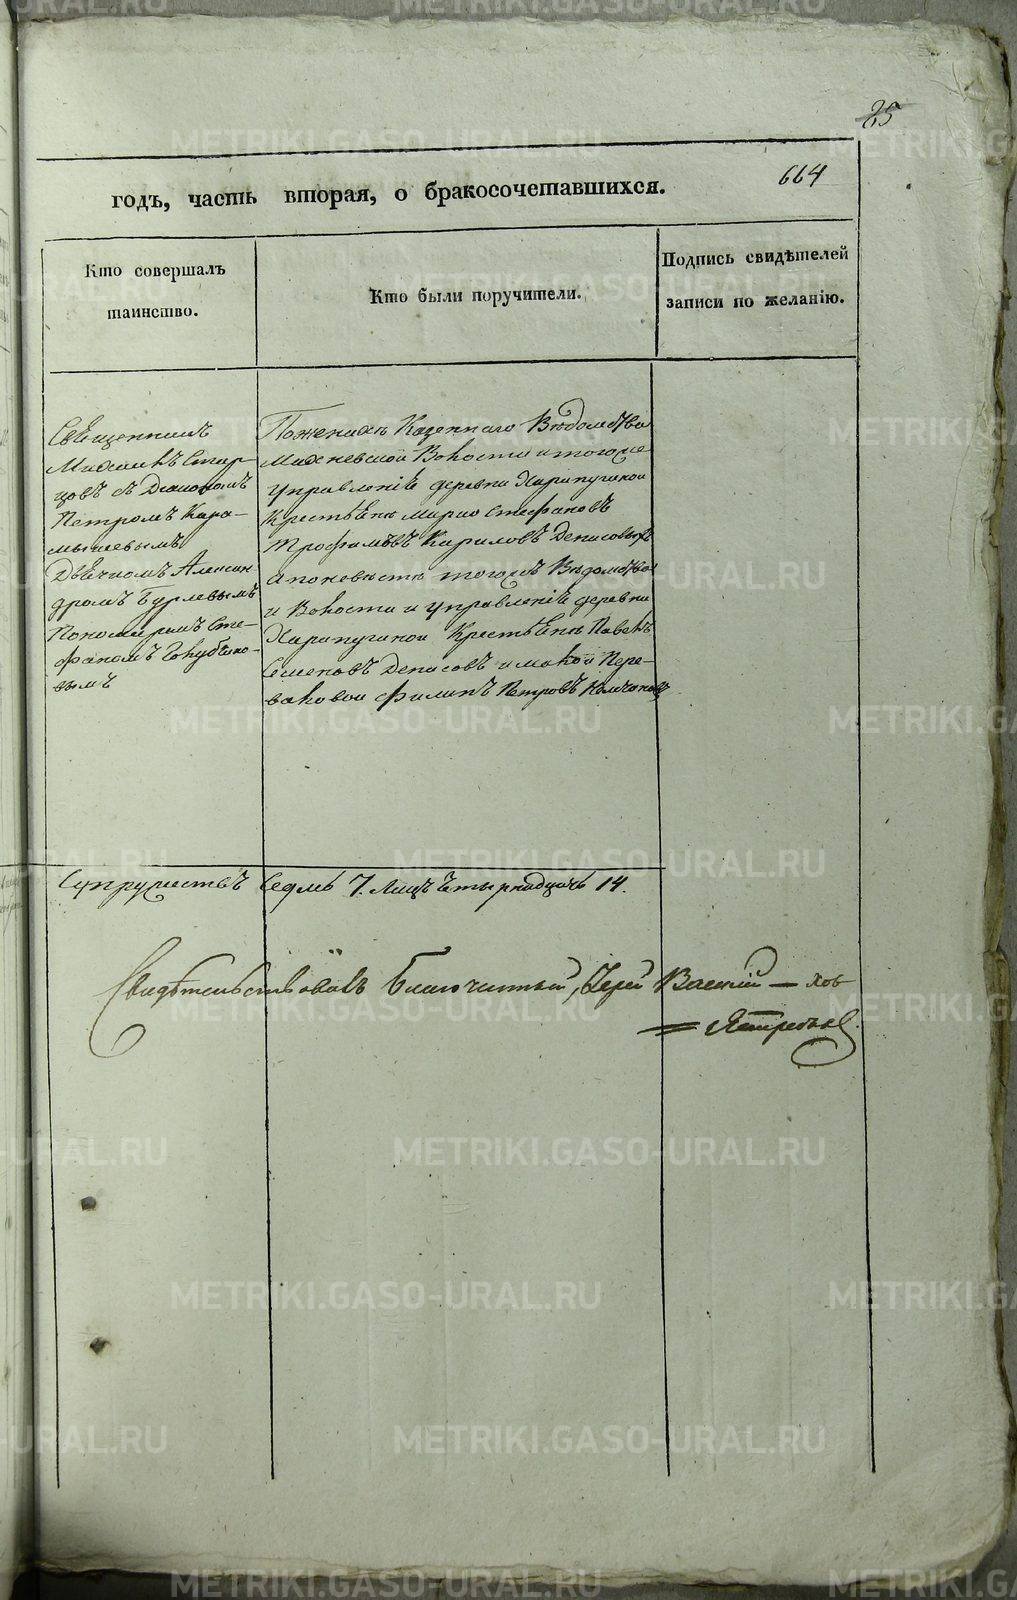 25
664
годъ, часть вторая, о бракосочетавшихся.
Кто совершалъ
таинство.
Кто были поручители.
Подпись свидѣтелей
записи по желанію.
Священникъ
Михаилъ Стар-
цовъ съ Діакономъ
Петромъ Кара-
мышевымъ
Дьячкомъ Алексан-
дромъ Бурлевымъ
Пономаремъ Сте-
фаномъ Голубчико-
вымъ
По женихѣ Казеннаго Вѣдомства
Михневской Волости и тогоже
Управленіе деревни Харапугиной
Крестьяне Марко Стефановъ
Трофимъ Кариловъ Денисовыхъ
а по невѣстѣ тогожъ Вѣдомства
и Волости и управленіе деревни
Харапугиной Крестьяне Павелъ
Семеновъ Денисовъ и малой Пере-
валовой Филипъ Петровъ
Супружествъ Седмь 7. Лицъ Четырнадцать 14.
Свидѣтельствовалъ Благочинный, Іерей Василій
METRIKI.GASO-URAL.RU